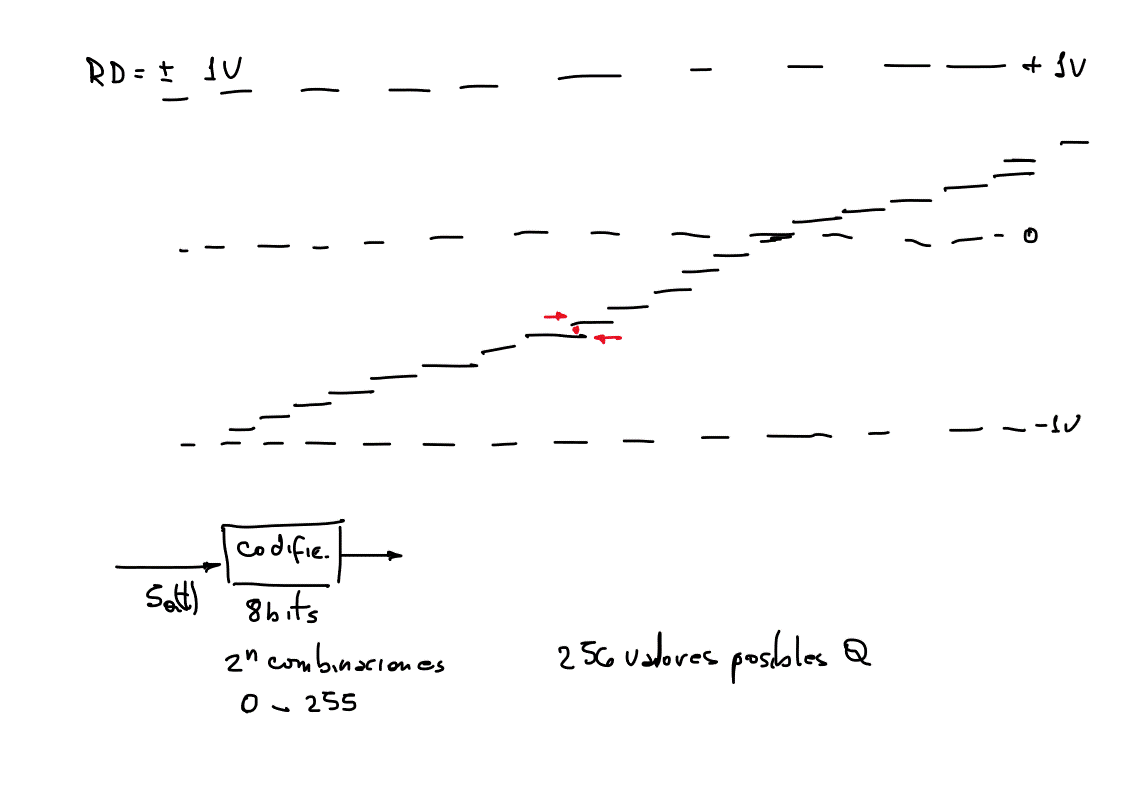 RD = ± 1V
+ 1V
0
-1V
codific.
8bits
2ⁿ combinaciones
0 - 255
256 valores posibles Q